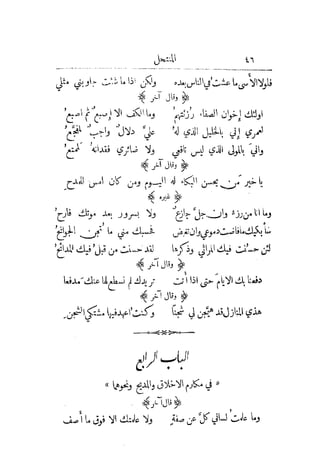 ٤٦ المنتحل
فلولا الأسى ما عشت في الناس بعده ولكن اذا ما شئت جاوبني مثلي
﴿ وقال آخر ﴾
اولئك إخوان الصفاء رُزئتهم وما الكف الا إصبع ثم اصبع
لعمري إني بالخليل الذي له عليّ دلال واجب لمفجع
واني بالمولى الذي ليس نافعي ولا ضائري فقدانه لممتع
﴿ وقال آخر ﴾
يا خير من يحسن البكاء له اليوم ومن كان امس للمدح
﴿ غيره ﴾
وما انا من رزء وان جل جازع ولا بسرور بعد موتك فارح
سأبكيك ما فاضت دموعي وان تغض فحسبك مني ما تجن الجوانح
لئن حسنت فيك المراثي وذكرها لقد حسنت من قبل فيك المدائح
﴿ وقال آخر ﴾
دفعنا بك الايام حتى اذا أتت تريدك لم نسطع لها عنك مدفعا
﴿ وقال آخر ﴾
هذي المنازل قد هيجن لي شجنا وكنت اعهد فيها مشتكى الشجن
الباب الرابع
« في مكارم الاخلاق والمديح ونحوها »
﴿ قال آخر ﴾
وما علمت لساني كل عن صفة ولا علمتك الا فوق ما أصف